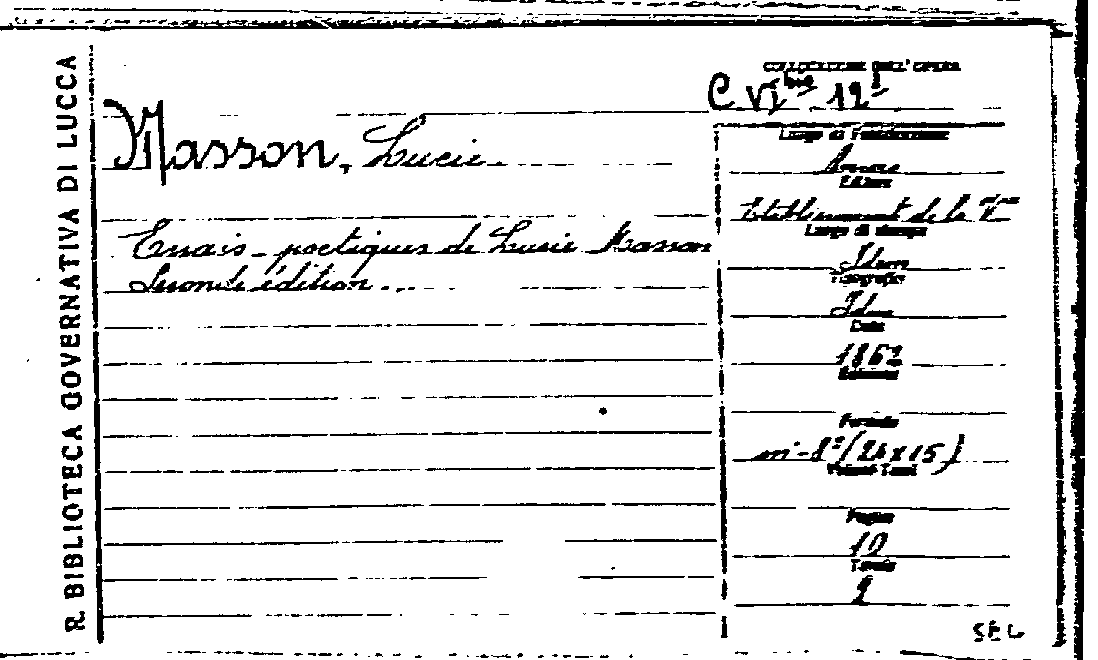 R. BIBLIOTECA GOVERNATIVA DI LUCCA
COLLOCAZIONE DELL'OPERA
C VI bis 12
Masson, Lucie
Luogo di Pubblicazione
Editore
Etablissement de la
Luogo di stampa
Essais poetiques de Lucie Masson
Idem
Tipografia
Seconde édition
Idem
Data
1862
Edizione
Formato
in-8º (24x15)
Volumi-Tomi
Pagine
10
Tavole
2
SEL